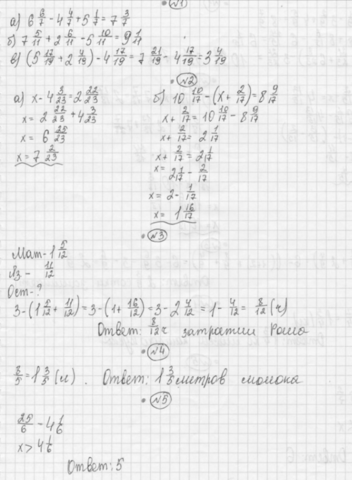 №1
а) 6 6/7 - 4 4/7 + 5 1/7 = 7 3/7
б) 7 5/11 + 2 6/11 - 5 10/11 =
в) (5 12/19 + 2 9/19) - 4 17/19 = 7 21/19 - 4 17/19 = 3 4/19
№2
а) x - 4 3/23 = 2 22/23
x = 2 22/23 + 4 3/23
x = 6 25/23
x = 7 2/23
б) 10 10/17 - (x + 2/17) = 8 9/17
x + 2/17 = 10 10/17 - 8 9/17
x + 2/17 = 2 1/17
x + 2/17 = 2 1/17
x = 2 1/17 - 2/17
x = 2 - 1/17
x = 1 16/17
№3
Мат - 1 5/12
Яз - 11/12
Ост - ?
3 - (1 5/12 + 11/12) = 3 - (1 + 16/12) = 3 - 2 4/12 = 1 - 4/12 = 8/12 (ч)
Ответ: 8/12 ч затратил
№4
8/5 = 1 3/5 (м). Ответ: 1 3/5 метров
№5
25/6 - 4 1/6
x > 4 1/6
Ответ: 5